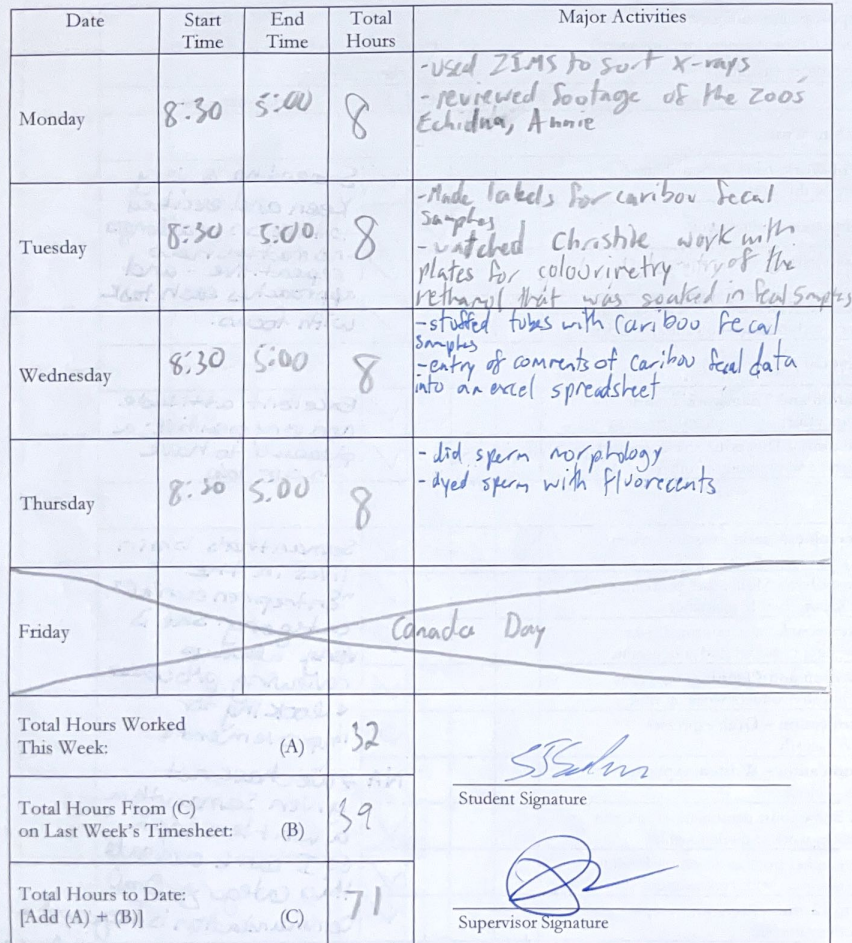 Date Start Time End Time Total Hours Major Activities
Monday 8:30 5:00 8
-used ZIMS to sort X-rays
-reviewed footage of the zoos
Echidna, Annie
Tuesday 8:30 5:00 8
-Made labels for caribou fecal
samples
-watched Christine work with
plates for colourimetry of the
methanol that was soaked in fecal smples
Wednesday 8:30 5:00 8
-stuffed tubes with caribou fecal
smples
-entry of comments of caribou fecal data
into an excel spreadsheet
Thursday 8:30 5:00 8
- did sperm morphology
- dyed sperm with fluorecents
Friday Canada Day
Total Hours Worked
This Week: (A) 32
Total Hours From (C)
on Last Week's Timesheet: (B) 39
Total Hours to Date:
[Add (A) + (B)] (C) 71
Student Signature
Supervisor Signature